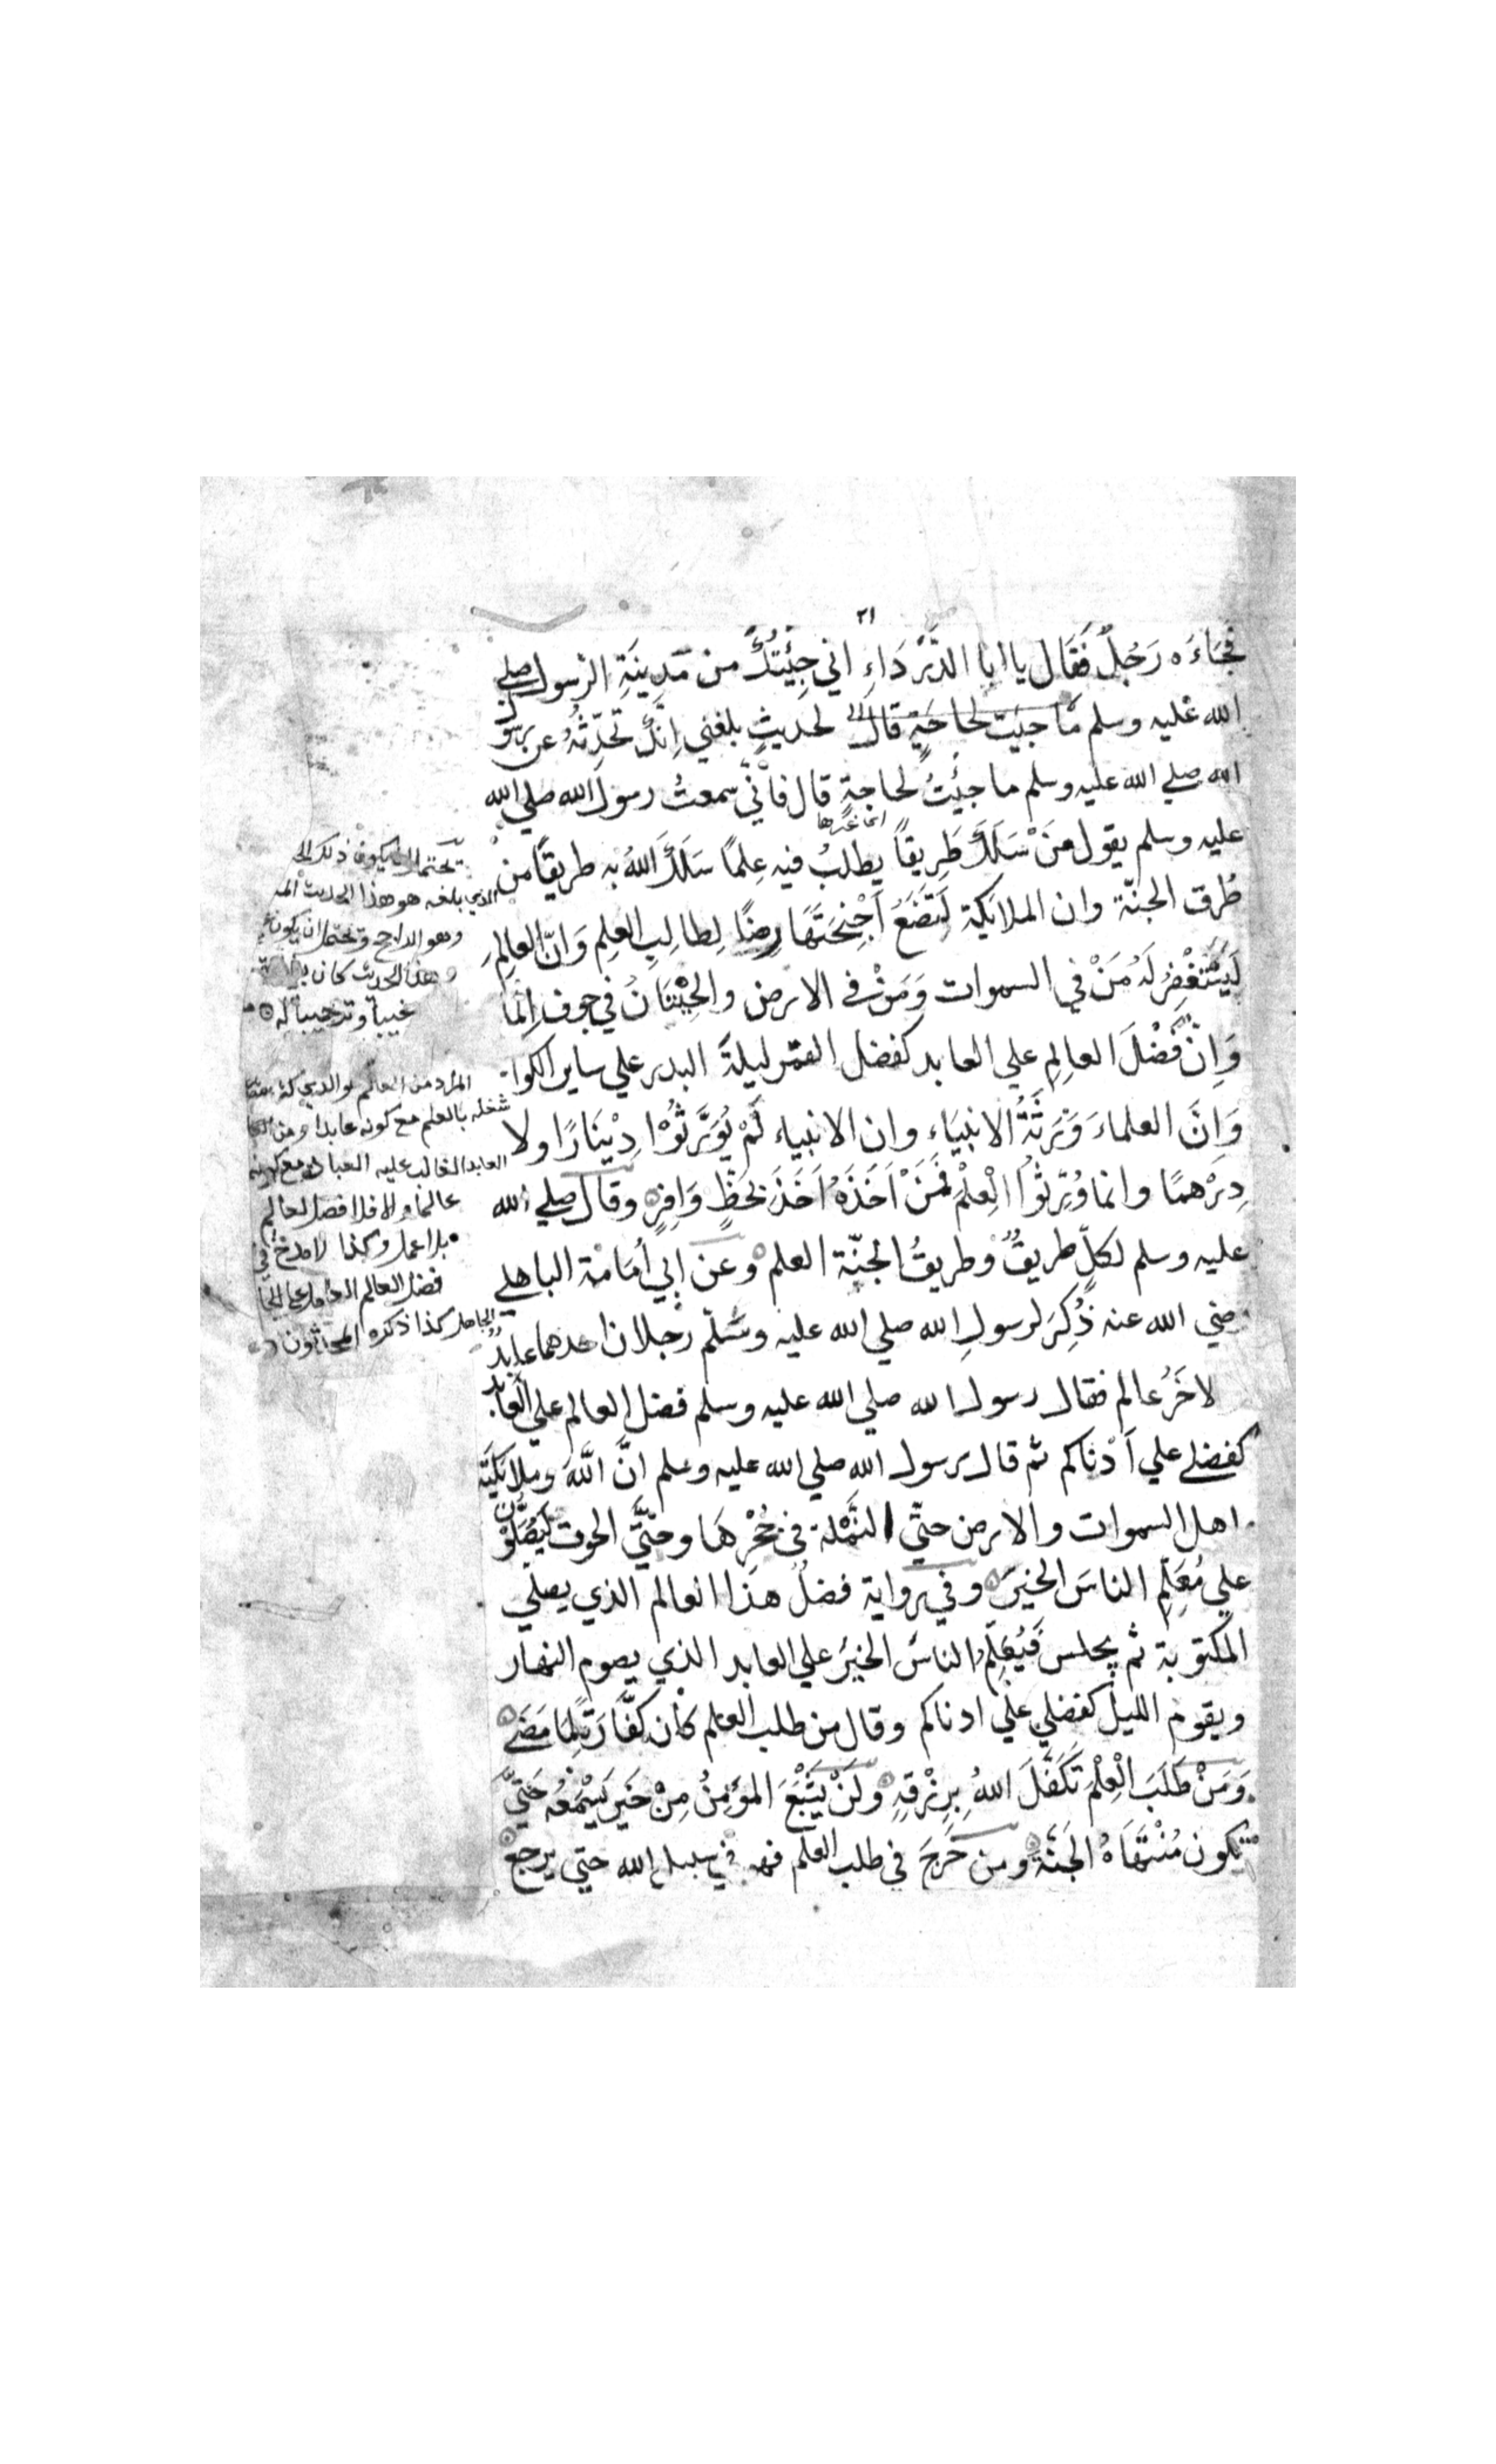 ٢١
فجَاءَه رَجُلٌ فَقَال يا ابا الدَّرْدَاءِ اني جِئْتُكَ من مَدِينَةِ الرسول صلي
الله عليه وسلم مَا جيَت لحاجَةٍ قال لحديثٍ بلغني اِنَّكَ تُحَدِّثُهُ عن رسول
الله صلي الله عليه وسلم ما جئِتُ لحاجةٍ قال فانّي سمعتُ رسول الله صلي الله
عليه وسلم يقول مَنْ سَلَكَ طَرِيقاً يطلبُ فيه عِلمًا سَلَكَ اللهُ به طريقًا من
طُرق الجنّة وان الملائكة لَتَضَعُ اَجْنِحَتَهَا رِضًا لِطالِبِ العِلمِ وَانّ العالِم
لَيَسْتَغْفِرُ لَهُ مَنْ في السموات وَمَنْ في الارض والحِيْتَانُ في جوف الما
وَاِنَّ فَضْلَ العالِمِ علي العابد كفضل القمر ليلةَ البدر علي ساير الكواكب
وَاِنَّ العلماءَ وَرَثَةُ الانبيَاءِ وان الانبياء لَمْ يُوَرِّثُوْا دِيْنَارًا ولا
دِرْهمًا وانما وَرَّثُوا الْعِلْمَ فمَنْ اَخَذَهُ اَخَذَ بحَظٍّ وَافِرٍ وقال صلي الله
عليه وسلم لكلٍّ طريقٌ وطريقُ الجنّة العلم وعن ابي اُمَامَة الباهلي
رضي الله عنه ذُكِرَ لرسولِ الله صلي الله عليه وسَلّم رجُلان احدهما عابدٌ
لاخَرُ عالم فقال رسول الله صلي الله عليه وسلم فضل العالم علي العابد
كفضلي علي اَدْناكم ثم قال رسول الله صلي الله عليه وسلم انَّ اللَّهَ وملائكتَه
اهل السموات والارض حتّي النَّمْلة في جُحْرِهَا وحتَّي الحوت لَيُصَلُّوْن
علي مُعَلِّمِ الناسَ الخيرَ وفي رواية فضلُ هذا العالم الذي يصلّي
المكتوبة ثم يجلس فَيُعَلِّمُ الناسَ الخيرَ علي العابد الذي يصوم النهار
ويقوم الليل كفضلي علي ادناكم وقال من طلب العلم كان كَفَّارَةً لِمَا مَضَي
وَمَنْ طَلَبَ الْعِلْمَ تَكَفَّلَ اللهُ بِرِزْقِهِ وَلَنْ يَشْبَعَ المؤمِنُ مِنْ خَيرٍ يَسْمَعُه حَتيّ
يكون مُنْتَهَاهُ الجَنّة ومن خَرَجَ في طلب العلم فهو في سبيل الله حتي يرجع
يحتمل ان يكون ذلك
الذي بلغه هو هذا الحديث
وهو الراجح ويحتمل ان يكون
وهذا الحديث كان
المراد من العالم
شغله بالعلم مع كونه عابدا ومن
العابد الغالب عليه العبادة مع كونه
عالما والا فلا فضل لعالم
بلا عمل وكذا لا
فضل العالم العامل علي
الجاهل كذا ذكره المحدثون